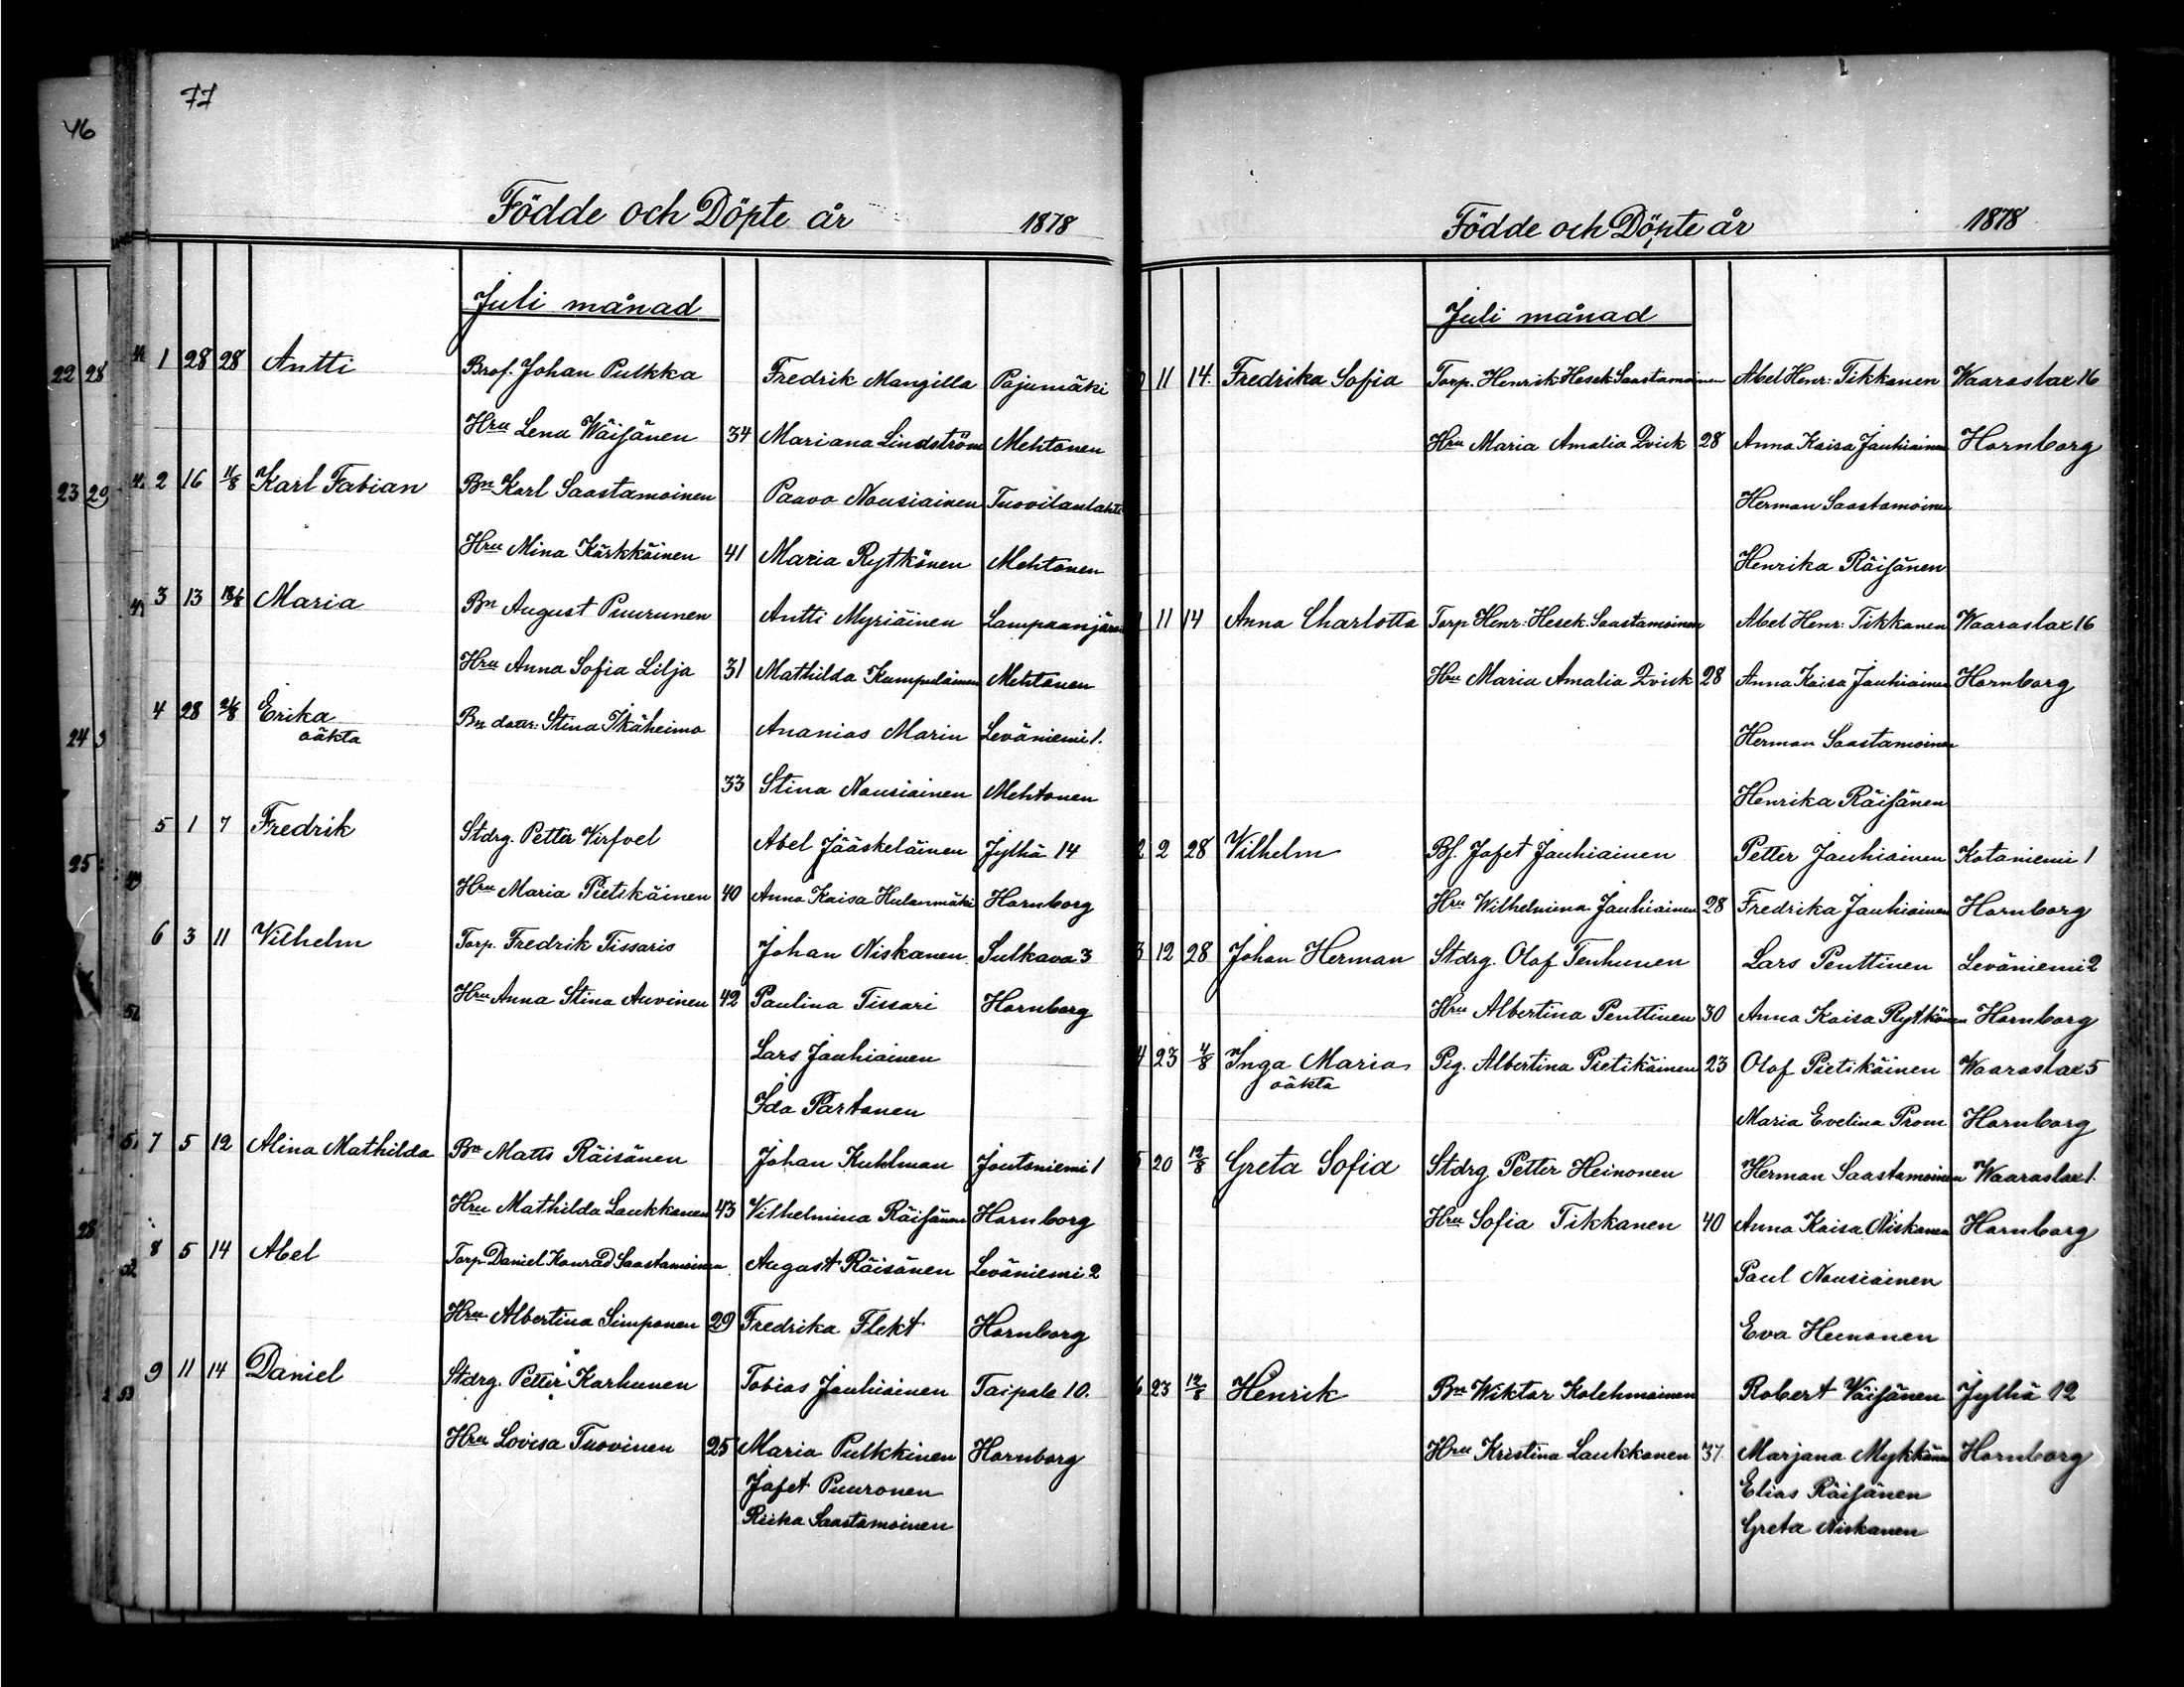 77
46
Födde och Döpte år 1878
Juli månad
1 28 28 Antti Brof. Johan Pulkka Fredrik Mangilla Pajumäki
Hru Lena Wäisänen 34 Mariana Lindström Mehtonen
2 16 11/8 Karl Fabian Bn Karl Saastamoinen Paavo Nousiainen Tuovilanlahti
Hru Mina Kärkkäinen 41 Maria Rytkönen Mehtonen
3 13 18/8 Maria Bn August Puurunen Antti Myriäinen
Hru Anna Sofia Lilja 31 Mathilda Kumpulainen Mehtonen
4 28 Erika Bn dotter: Stina Ikäheimo Ananias Marin Leväniemi 1.
oäkta
33 Stina Nousiainen Mehtonen
5 1 7 Fredrik Stdrg. Petter Virfvel Abel Jääskeläinen Jylhä 14
Hru Maria Pietikäinen 40 Anna Kaisa Hulanmäki Hornborg
6 3 11 Vilhelm Torp. Fredrik Tissaris Johan Niskanen Sulkava 3
Hru Anna Stina Auvinen 42 Paulina Tissari Hornborg
Lars Jauhiainen
Ida Partanen
7 5 12 Alina Mathilda Bn Matts Räisänen Johan Kuhlman Joutsniemi 1
Hru Mathilda Laukkanen 43 Vilhelmina Räisänen Hornborg
8 5 14 Abel Torp Daniel Konrad Saastamoinen August Räisänen Leväniemi 2
Hru Albertina Simponen 29 Fredrika Flekt Hornborg
9 11 14 Daniel Stdrg. Petter Karhunen Tobias Jauhiainen Taipale 10.
Hru Lovisa Tuovinen 25 Maria Pulkkinen Hornborg
Jafet Puuronen
Riika Saastamoinen
Födde och Döpte år 1878
Juli månad
11 14. Fredrika Sofia Torp. Henrik Hesek Saastamoinen Abel Henr: Tikkanen Waaraslax 16
Hru Maria Amalia Qvick 28 Anna Kaisa Jauhiainen Hornborg
Herman Saastamoinen
Henrika Räisänen
11 14 Anna Charlotta Torp Henr: Hesek. Saastamoinen Abel Henr: Tikkanen Waaraslax 16
Hru Maria Amalia Qvick 28 Anna Kaisa Jauhiainen Hornborg
Herman Saastamoinen
Henrika Räisänen
2 2 28 Vilhelm Bf. Jafet Jauhiainen Petter Jauhiainen Kotaniemi 1
Hru Wilhelmina Jauhiainen 28 Fredrika Jauhiainen Hornborg
3 12 28 Johan Herman Stdrg. Olof Tenhunen Lars Penttinen Leväniemi 2
Hru Albertina Penttinen 30 Anna Kaisa Rytkönen Hornborg
4 23 4/8 Inga Maria Pig. Albertina Pietikäinen 23 Olof Pietikäinen Waaraslax 5
oäkta
Maria Evelina Prom Hornborg
5 20 12/8 Greta Sofia Stdrg Petter Heinonen Herman Saastamoinen Waaraslax 1.
Hru Sofia Tikkanen 40 Anna Kaisa Niskanen Hornborg
Paul Nousiainen
Eva Heinonen
6 23 12/8 Henrik Bn Wiktor Kolehmainen Robert Väisänen Jylhä 12
Hru Kristina Laukkanen 37. Marjana Mykkänen Hornborg
Elias Räisänen
Greta Niskanen